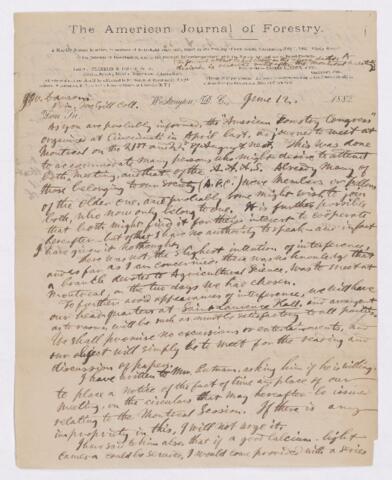 The American Journal of Forestry.
Washington, D. C., June 12, 1882
Dear Sir.
As you are possibly informed the American Forestry Congress
organized at Cincinnati in April last, adjourned to meet at
Montreal on the 21st and of August next. This was done
to accommodate many persons who might desire to attend
both, meeting, as that of the A.A.A.S. Already many of
those belonging to our Society are members or fellows
of the older one, and probably some might wish to join
both, who now only belong to one. It is further possible
that both might find it for their interest to cooperate
hereafter but of this I have no authority to speak and in fact
I have given it no thought.
There was not the slightest intention of interference,
and so far as I am concerned there was no knowledge that
a branch devoted to Agricultural Science, was to meet at
Montreal, on the two days we have chosen.
To further avoid appearances of interference, we will have
our headquarters at Saint Lawrence Hall, and arrangement
as to rooms will be such as mutually satisfactory to all parties.
We shall promise no excursions or entertainments, and
our object will simply be to meet for the reading and
discussion of papers.
I have written to Mr. Putnam, asking him if he is willing,
to place a notice of the fact of time and place of our
meeting, on the circulars that may hereafter be issued
relating to the Montreal Session. If there is any
impropriety in this, I will not urge it.
I have said to him also that if a good calcium-light
camera could be serviced, I would come provided with a series